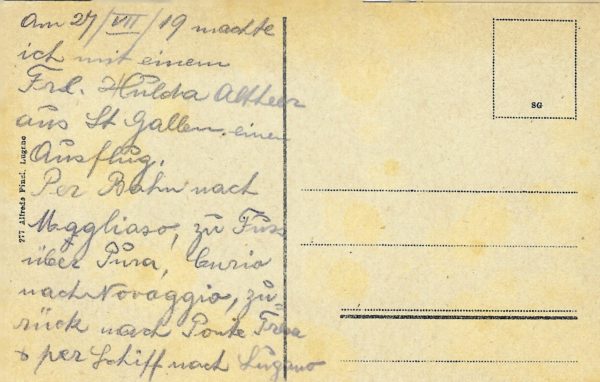 Am 27/VII/19 machte
ich mit einem
Frl. Hulda Altheer
aus St Gallen einen
Ausflug.
Per Bahn nach
Magliaso, zu Fuss
über Pura, Curio
nach Novaggio, zu-
rück nach Ponte Tresa
& per Schiff nach Lugano
277 Alfredo Finzi, Lugano
SG